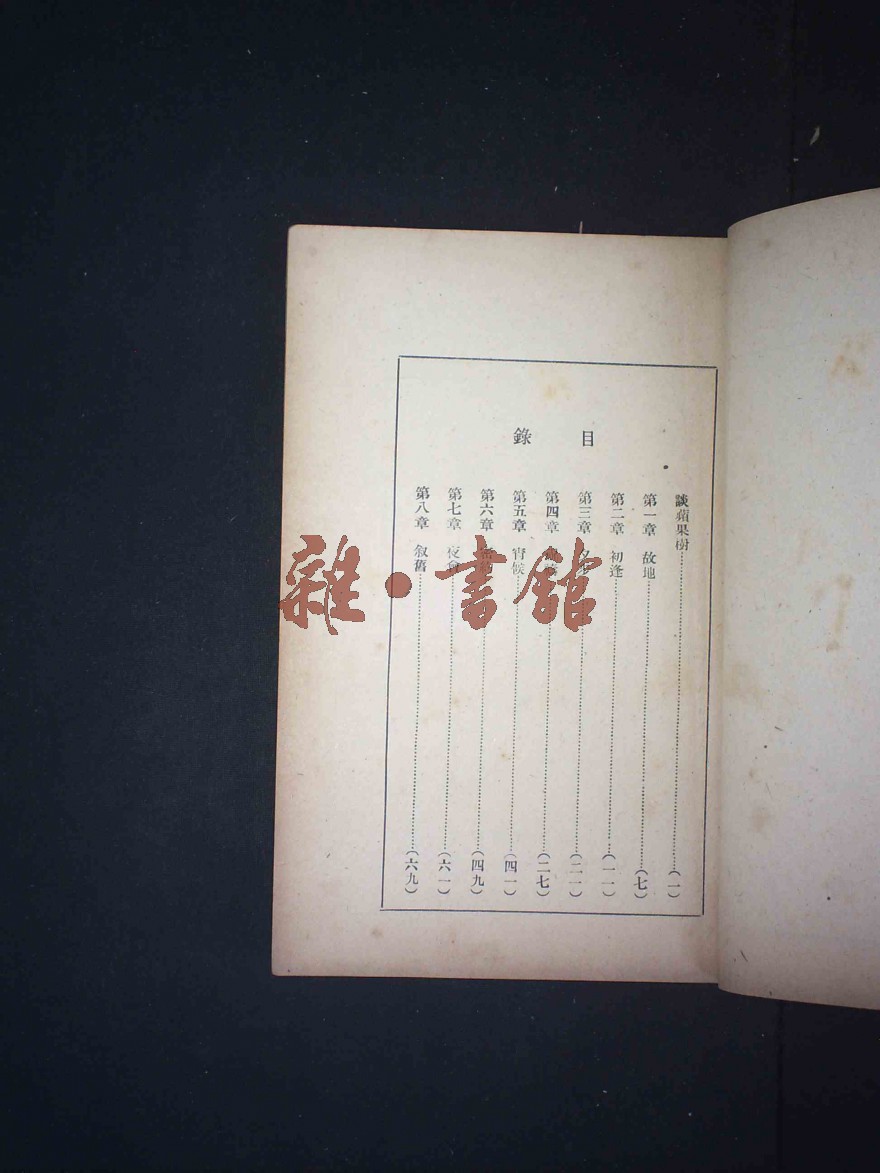 目錄
談蘋果樹………(一)
第一章 故地………(七)
第二章 初逢………(一一)
第三章………(二一)
第四章………(二七)
第五章 宵候………(四一)
第六章………(四九)
第七章 夜會………(六一)
第八章 敘舊………(六九)
雜·書館